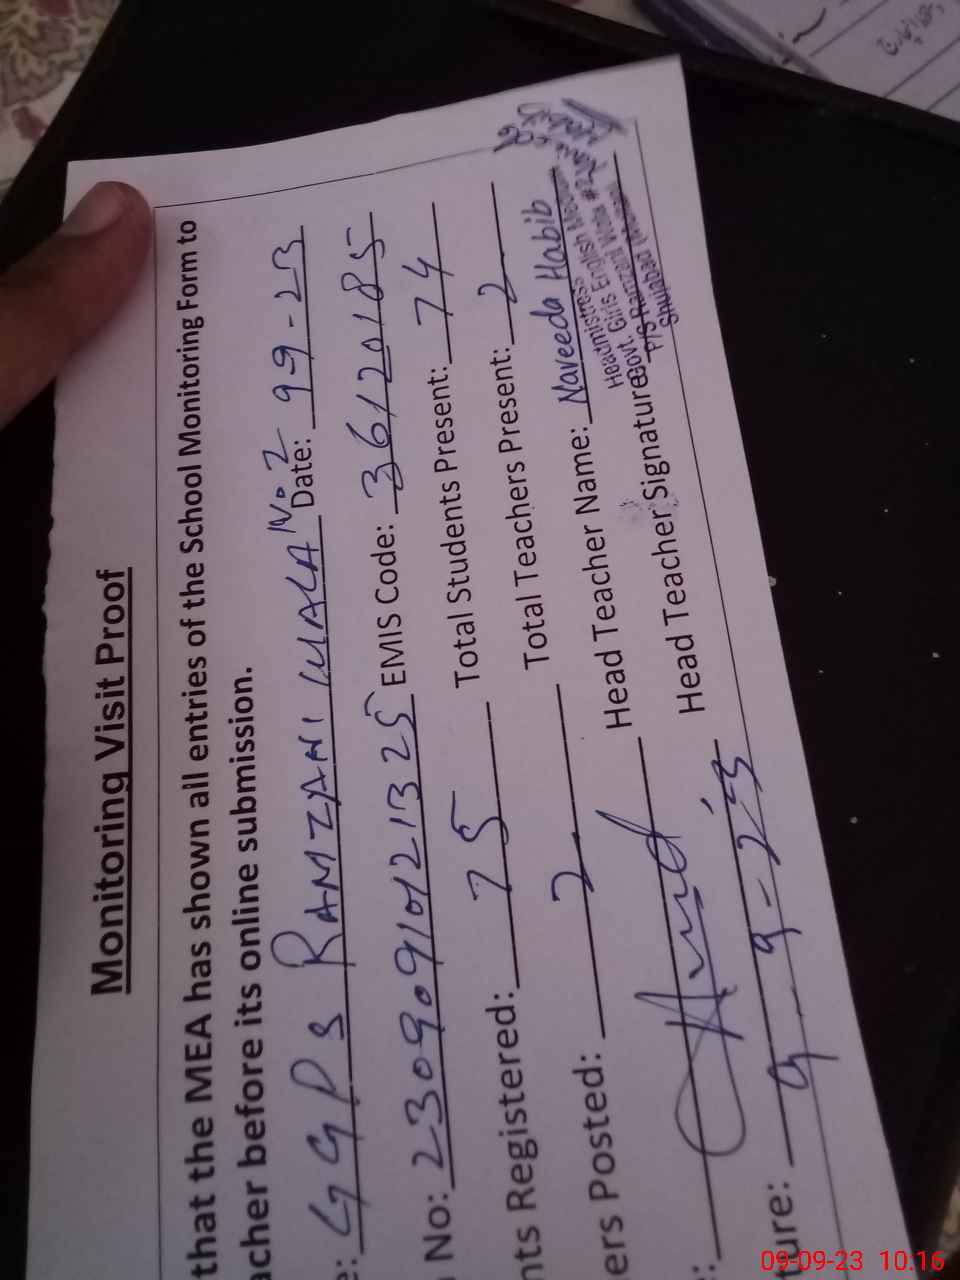 Monitoring Visit Proof
that the MEA has shown all entries of the School Monitoring Form to
acher before its online submission.
e: GGPS RAMZANI WALA No. 2 Date: 9-9-23
No: 230909101121325 EMIS Code: 36120185
nts Registered: 75 Total Students Present: 74
ers Posted: 2 Total Teachers Present: 2
Head Teacher Name: Naveeda Habib
ture: 9-9-23 Head Teacher Signature:
Headmistress
Govt. Girls English Medium
P/S Ramzani Wala #2
Shujabad
09-09-23 10:16